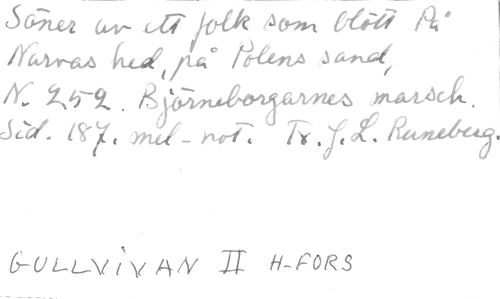 Söner av ett folk som blött På
Narvas hed, på Polens sand,
N. 252. Björneborgarnes marsch.
Sid. 187. mel-not. Tx. J. L. Runeberg.
GULLVIVAN II H-FORS